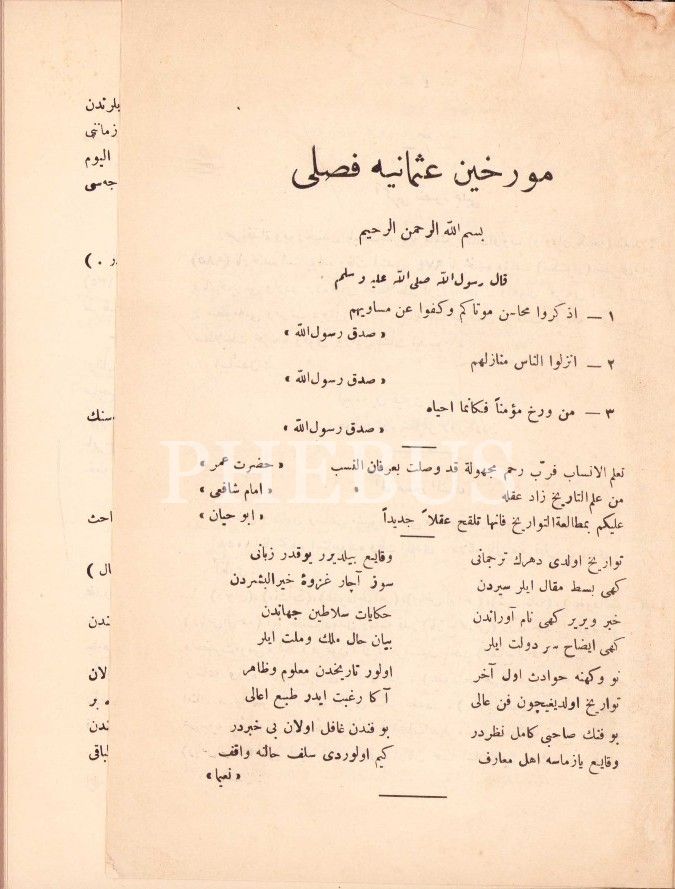 مورخین عثمانیه فصلی
بسم اللّه الرحمن الرحیم
قال رسول اللّه صلی اللّه علیه و سلم
۱ — اذكروا محاسن موتاكم وكفوا عن مساویهم
« صدق رسول اللّه »
۲ — انزلوا الناس منازلهم
« صدق رسول اللّه »
۳ — من ورخ مؤمناً فكانما احیاه
« صدق رسول اللّه »
تعلم الانساب فربّ رحم مجهولة قد وصلت بعرفان النسب « حضرت عمر »
من علم التاریخ زاد عقله « امام شافعی »
علیكم بمطالعة التواریخ فانها تلقح عقلاً جدیداً « ابو حیان »
تواریخ اولدی دهرك ترجمانی وقایع بیلدیرر یوقدر زبانی
كهی بسط مقال ایلر سیردن سوز آچار غزوۀ خیر البشردن
خبر ویریر كهی نام آوراندن حكایات سلاطین جهاندن
كهی ایضاح سر دولت ایلر بیان حال ملك وملت ایلر
نو وكهنه حوادث اول آخر اولور تاریخدن معلوم وظاهر
تواریخ اولدیغیچون فن عالی آكا رغبت ایدو طبع اعالی
بو فنك صاحبی كامل نظردر بو فندن غافل اولان بی خبردر
وقایع یازماسه اهل معارف كیم اولوردی سلف حالنه واقف
« نعیما »
بلرندن
زماننی
الیوم
جه سی
ر . )
سنك
احث
ال )
ندن
لان
ه بر
ندن
لباقی
PHEBUS